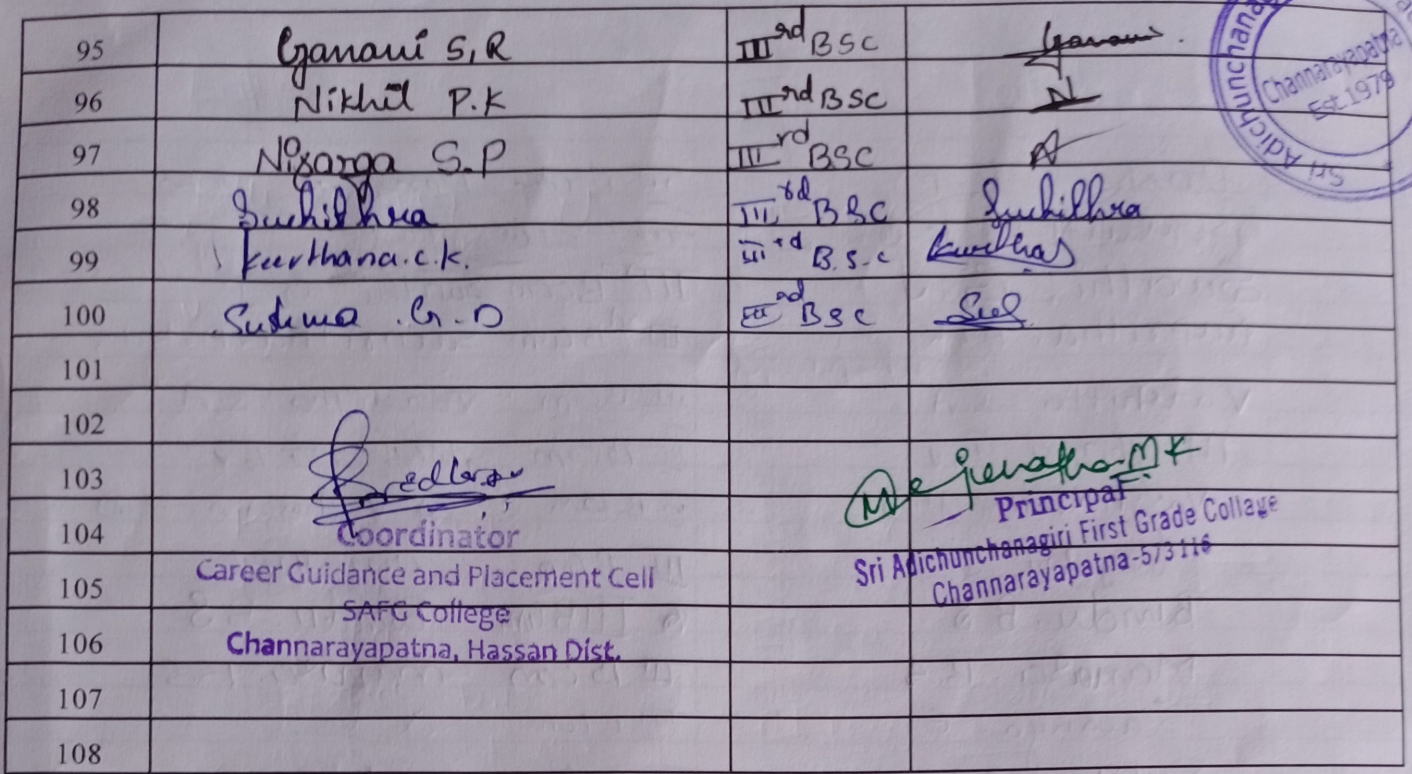 95 Ganavi S, R IIIrd BSC Ganavi
96 Nikhil P.K IIIrd BSC N
97 Nisarga S.P IIIrd BSC
98 Suchithra IIIrd BSC Suchithra
99 keerthana.c.k. IIIrd B.S.C
100 Sushma .G.D IIIrd BSC
101
102
103
104
105
106
107
108
Coordinator
Career Guidance and Placement Cell
SAFG College
Channarayapatna, Hassan Dist.
Manjunatha.M K
Principal
Sri Adichunchanagiri First Grade Collage
Channarayapatna-573116
Sri Adichunchana
Channarayapatna
Est 1979